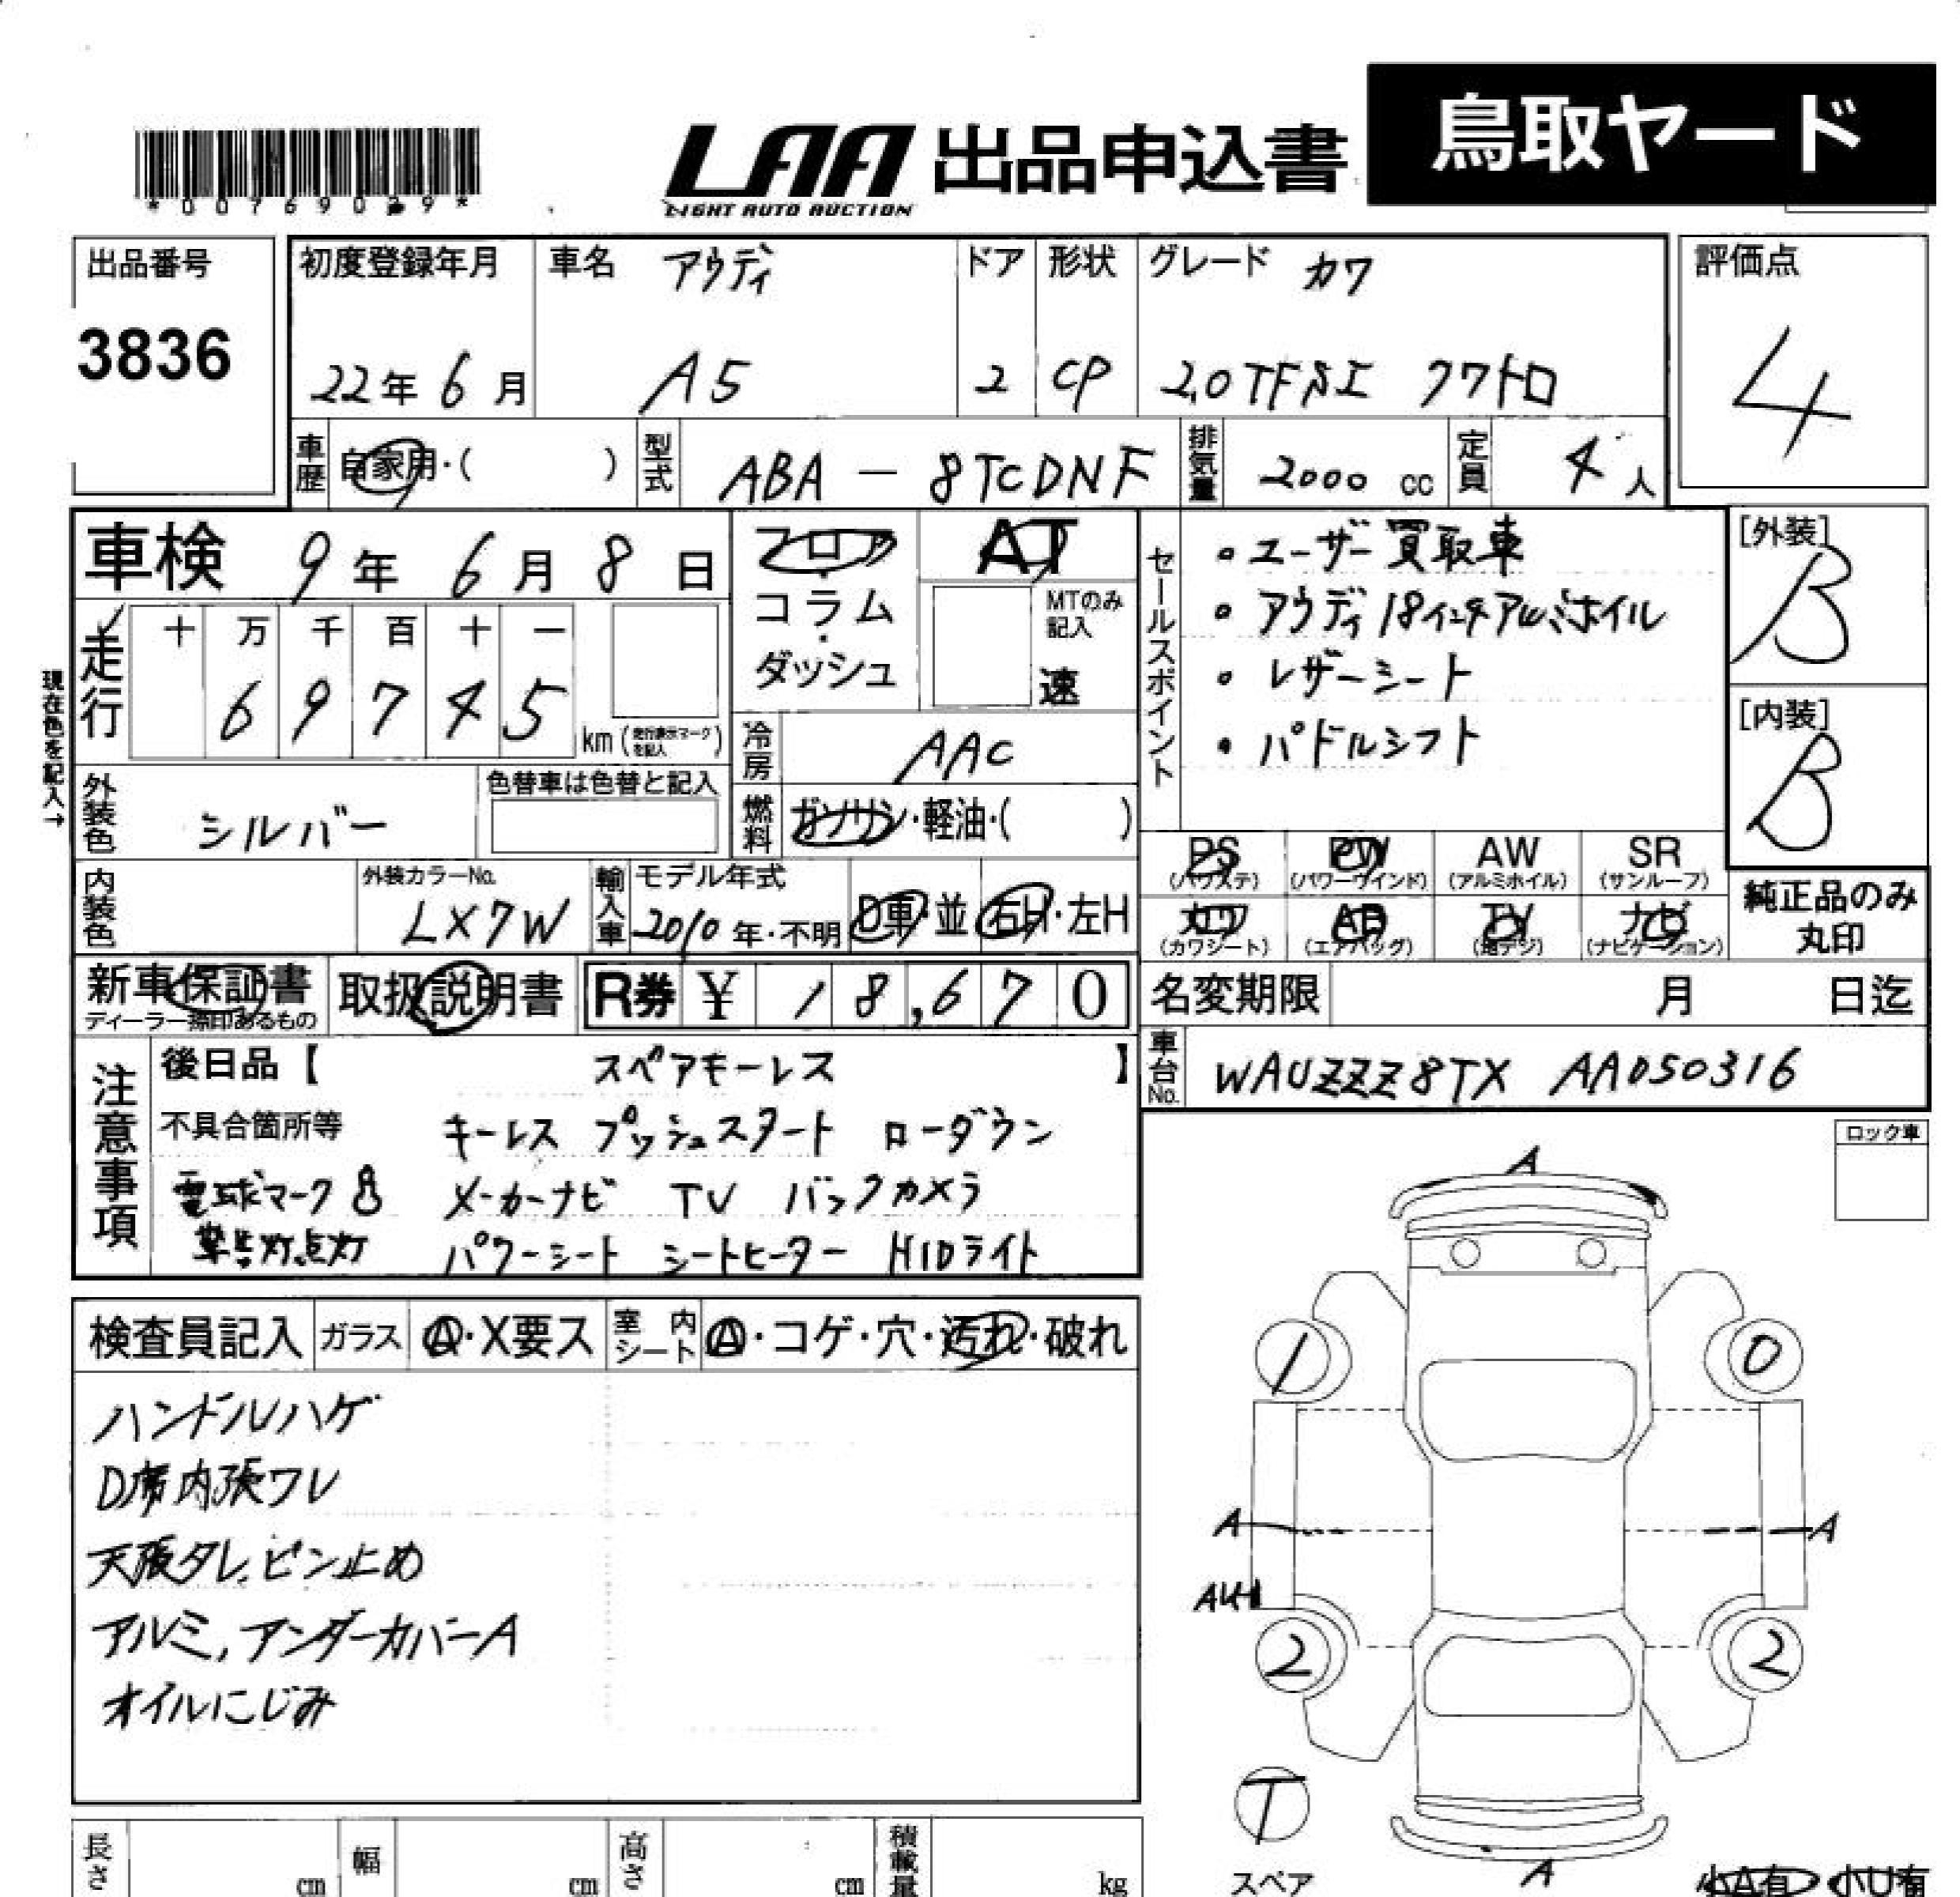 *00769029*
LAA 出品申込書 鳥取ヤード
LIGHT AUTO AUCTION
出品番号 3836
初度登録年月 22年 6月
車名 アウディ A5
ドア 2
形状 CP
グレード カワ 2.0TFSI クワトロ
評価点 4
車歴 自家用・( )
型式 ABA-8TCDNF
排気量 2000 cc
定員 4人
車検 9年 6月 8日
フロア・コラム・ダッシュ
AT
MTのみ記入
速
現在色を記入→
走行 十 万 千 百 十 一
69745 km (走行表示マークを記入)
冷房 AAC
外装色 シルバー
色替車は色替と記入
燃料 ガソリン・軽油・( )
内装色
外装カラーNo. LX7W
輸入車 モデル年式 2010年・不明 D車・並 右H・左H
セールスポイント
・ユーザー買取車
・アウディ18インチアルミホイル
・レザーシート
・パドルシフト
[外装] B
[内装] B
PS (パワステ) PW (パワーウインド) AW (アルミホイル) SR (サンルーフ)
カワ (カワシート) AB (エアバッグ) TV (地デジ) ナビ (ナビゲーション)
純正品のみ丸印
新車保証書 ディーラー捺印あるもの
取扱説明書
R券 ¥ 18,670
名変期限 月 日迄
車台No. WAUZZZ8TX AA050316
注意事項
後日品【 スペアキーレス 】
不具合箇所等 キーレス プッシュスタート ローダウン
電球マーク メーカーナビ TV バックカメラ
警告灯点灯 パワーシート シートヒーター HIDライト
ロック車
検査員記入 ガラス A・X要ス 室内シート A・コゲ・穴・汚れ・破れ
ハンドルハゲ
D席内張ワレ
天張タレ、ピン止め
アルミ、アンダーカバーA
オイルにじみ
A
1 0
A A
2 2
T
スペア
A
小A有 小U有
長さ cm 幅 cm 高さ cm 積載量 kg